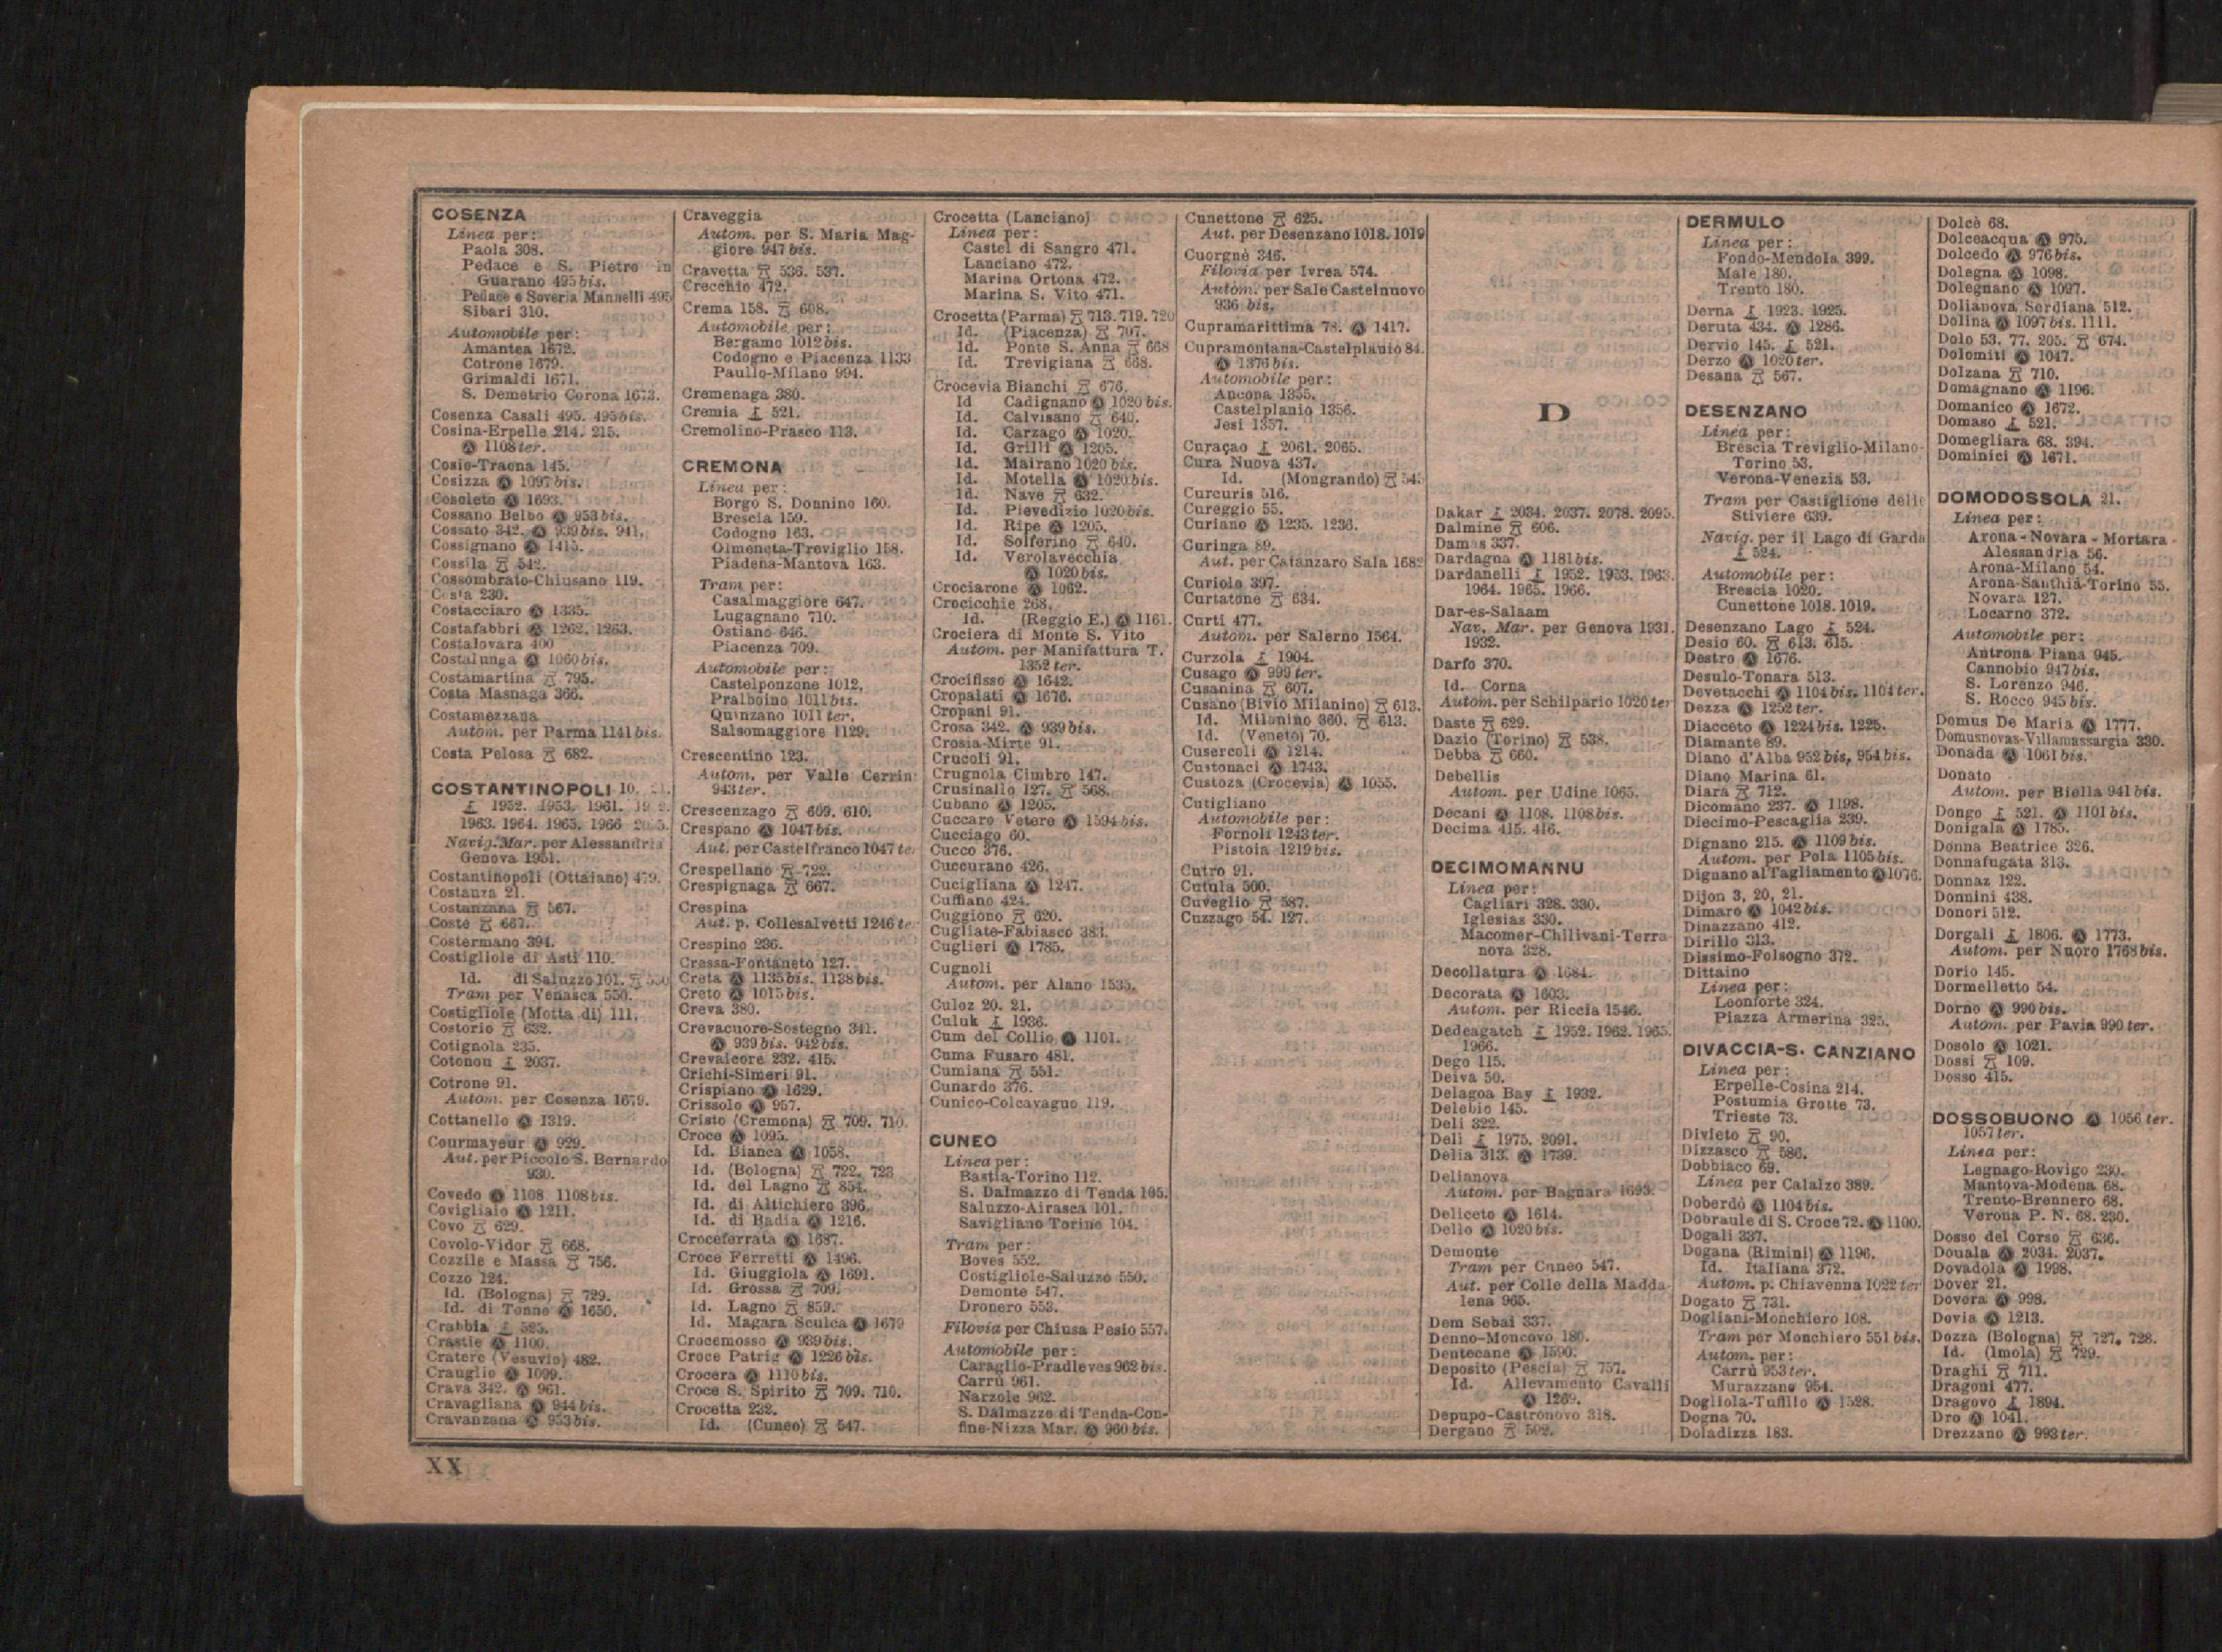 COSENZA
Linea per:
Paola 308.
Pedace e S. Pietro in
Guarano 495 bis.
Pedace e Soveria Mannelli 495
Sibari 310.
Automobile per:
Amantea 1672.
Cotrone 1679.
Grimaldi 1671.
S. Demetrio Corona 1673.
Cosenza Casali 495. 495 bis.
Cosina-Erpelle 214. 215.
1108 ter.
Cosio-Traona 145.
Cosizza 1097 bis.
Cosoleto 1693.
Cossano Belbo 953 bis.
Cossato 342. 939 bis. 941.
Cossignano 1415.
Cossila 542.
Cossombrato-Chiusano 119.
Costa 230.
Costacciaro 1335.
Costafabbri 1262. 1263.
Costalovara 400
Costalunga 1060 bis.
Costamartina 795.
Costa Masnaga 366.
Costamezzana
Autom. per Parma 1141 bis.
Costa Pelosa 682.
COSTANTINOPOLI 10.
1952. 1953. 1961.
1963. 1964. 1965. 1966
Navig. Mar. per Alessandria
Genova 1951.
Costantinopoli (Ottaiano) 479.
Costanza 21.
Costanzana 567.
Coste 667.
Costermano 394.
Costigliole di Asti 110.
Id. di Saluzzo 101. 550
Tram per Venasca 550.
Costigliole (Motta di) 111.
Costorio 632.
Cotignola 235.
Cotonou 2037.
Cotrone 91.
Autom. per Cosenza 1679.
Cottanello 1319.
Courmayeur 929.
Aut. per Piccolo S. Bernardo
930.
Covedo 1108 1108 bis.
Covigliaio 1211.
Covo 629.
Covolo-Vidor 668.
Cozzile e Massa 756.
Cozzo 124.
Id. (Bologna) 729.
Id. di Tonno 1650.
Crabbia 525.
Crastie 1100.
Cratere (Vesuvio) 482.
Crauglio 1099.
Crava 342. 961.
Cravagliana 944 bis.
Cravanzana 953 bis.
Craveggia
Autom. per S. Maria Mag-
giore 947 bis.
Cravetta 536. 537.
Crecchio 472.
Crema 158. 608.
Automobile per:
Bergamo 1012 bis.
Codogno e Piacenza 1133
Paullo-Milano 994.
Cremenaga 380.
Cremia 521.
Cremolino-Prasco 113.
CREMONA
Linea per:
Borgo S. Donnino 160.
Brescia 159.
Codogno 163.
Olmeneta-Treviglio 158.
Piadena-Mantova 163.
Tram per:
Casalmaggiore 647.
Lugagnano 710.
Ostiano 646.
Piacenza 709.
Automobile per:
Castelponzone 1012.
Pralboino 1011 bis.
Quinzano 1011 ter.
Salsomaggiore 1129.
Crescentino 123.
Autom. per Valle Cerrin
943 ter.
Crescenzago 609. 610.
Crespano 1047 bis.
Aut. per Castelfranco 1047 te
Crespellano 722.
Crespignaga 667.
Crespina
Aut. p. Collesalvetti 1246 te
Crespino 236.
Cressa-Fontaneto 127.
Creta 1135 bis. 1138 bis.
Creto 1015 bis.
Creva 380.
Crevacuore-Sostegno 341.
939 bis. 942 bis.
Crevalcore 232. 415.
Crichi-Simeri 91.
Crispiano 1629.
Crissolo 957.
Cristo (Cremona) 709. 710.
Croce 1095.
Id. Bianca 1058.
Id. (Bologna) 722. 723
Id. del Lagno 854.
Id. di Altichiero 396.
Id. di Badia 1216.
Croceferrata 1687.
Croce Ferretti 1496.
Id. Giuggiola 1691.
Id. Grossa 709.
Id. Lagno 859.
Id. Magara Sculca 1679
Crocemosso 939 bis.
Croce Patrig 1226 bis.
Crocera 1110 bis.
Croce S. Spirito 709. 710.
Crocetta 232.
Id. (Cuneo) 547.
Crocetta (Lanciano)
Linea per:
Castel di Sangro 471.
Lanciano 472.
Marina Ortona 472.
Marina S. Vito 471.
Crocetta (Parma) 713. 719. 720
Id. (Piacenza) 707.
Id. Ponte S. Anna 668
Id. Trevigiana 668.
Crocevia Bianchi 676.
Id Cadignano 1020 bis.
Id. Calvisano 640.
Id. Carzago 1020.
Id. Grilli 1205.
Id. Mairano 1020 bis.
Id. Motella 1020 bis.
Id. Nave 632.
Id. Pievedizio 1020 bis.
Id. Ripe 1205.
Id. Solferino 640.
Id. Verolavecchia
1020 bis.
Crociarone 1062.
Crocicchie 268.
Id. (Reggio E.) 1161.
Crociera di Monte S. Vito
Autom. per Manifattura T.
1352 ter.
Crocifisso 1642.
Cropalati 1676.
Cropani 91.
Crosa 342. 939 bis.
Crosia-Mirto 91.
Crucoli 91.
Crugnola Cimbro 147.
Crusinallo 127. 568.
Cubano 1205.
Cuccaro Vetere 1594 bis.
Cucciago 60.
Cucco 376.
Cuccurano 426.
Cucigliana 1247.
Cuffiano 424.
Cuggiono 620.
Cugliate-Fabiasco 38.
Cuglieri 1785.
Cugnoli
Autom. per Alano 1535.
Culoz 20. 21.
Culuk 1936.
Cum del Collio 1101.
Cuma Fusaro 481.
Cumiana 551.
Cunardo 376.
Cunico-Colcavagno 119.
CUNEO
Linea per:
Bastia-Torino 112.
S. Dalmazzo di Tenda 105.
Saluzzo-Airasca 101.
Savigliano Torino 104.
Tram per:
Boves 552.
Costigliole-Saluzzo 550.
Demonte 547.
Dronero 553.
Filovia per Chiusa Pesio 557.
Automobile per:
Caraglio-Pradleves 962 bis.
Carrù 961.
Narzole 962.
S. Dalmazzo di Tenda-Con-
fine-Nizza Mar. 960 bis.
Cunettone 625.
Aut. per Desenzano 1018. 1019
Cuorgnè 346.
Filovia per Ivrea 574.
Autom. per Sale Castelnuovo
936 bis.
Cupramarittima 78. 1417.
Cupramontana-Castelplanio 84.
1376 bis.
Automobile per:
Ancona 1355.
Castelplanio 1356.
Jesi 1357.
Curaçao 2061. 2065.
Cura Nuova 437.
Id. (Mongrando) 543
Curcuris 516.
Cureggio 55.
Curiano 1235. 1236.
Curinga 89.
Aut. per Catanzaro Sala 1682
Curiolo 397.
Curtatone 634.
Curti 477.
Autom. per Salerno 1564.
Curzola 1904.
Cusago 999 ter.
Cusanina 607.
Cusano (Bivio Milanino) 613.
Id. Milanino 360. 613.
Id. (Veneto) 70.
Cusercoli 1214.
Custonaci 1743.
Custoza (Crocevia) 1055.
Cutigliano
Automobile per:
Fornoli 1243 ter.
Pistoia 1219 bis.
Cutro 91.
Cutula 500.
Cuveglio 587.
Cuzzago 54. 127.
D
Dakar 2034. 2037. 2078. 2095.
Dalmine 606.
Damas 337.
Dardagna 1181 bis.
Dardanelli 1952. 1953. 1963.
1964. 1965. 1966.
Dar-es-Salaam
Nav. Mar. per Genova 1931.
1932.
Darfo 370.
Id. Corna
Autom. per Schilpario 1020 ter
Daste 629.
Dazio (Torino) 538.
Debba 660.
Debellis
Autom. per Udine 1065.
Decani 1108. 1108 bis.
Decima 415. 416.
DECIMOMANNU
Linea per:
Cagliari 328. 330.
Iglesias 330.
Macomer-Chilivani-Terra
nova 328.
Decollatura 1684.
Decorata 1603.
Autom. per Riccia 1546.
Dedeagatch 1952. 1962. 1965.
1966.
Dego 115.
Deiva 50.
Delagoa Bay 1932.
Delebio 145.
Deli 322.
Delì 1975. 2091.
Delia 313. 1739.
Delianova
Autom. per Bagnara 1693.
Deliceto 1614.
Dello 1020 bis.
Demonte
Tram per Cuneo 547.
Aut. per Colle della Madda-
lena 965.
Dem Sebai 337.
Denno-Moncovo 180.
Dentecane 1590.
Deposito (Pescia) 757.
Id. Allevamento Cavalli
1269.
Depupo-Castronovo 318.
Dergano 592.
DERMULO
Linea per:
Fondo-Mendola 399.
Malè 180.
Trento 180.
Derna 1923. 1925.
Deruta 434. 1286.
Dervio 145. 521.
Derzo 1020 ter.
Desana 567.
DESENZANO
Linea per:
Brescia Treviglio-Milano-
Torino 53.
Verona-Venezia 53.
Tram per Castiglione delle
Stiviere 639.
Navig. per il Lago di Garda
524.
Automobile per:
Brescia 1020.
Cunettone 1018. 1019.
Desenzano Lago 524.
Desio 60. 613. 615.
Destro 1676.
Desulo-Tonara 513.
Devetacchi 1104 bis. 1104 ter.
Dezza 1252 ter.
Diacceto 1224 bis. 1225.
Diamante 89.
Diano d'Alba 952 bis. 954 bis.
Diano Marina 61.
Diara 712.
Dicomano 237. 1198.
Diecimo-Pescaglia 239.
Dignano 215. 1109 bis.
Autom. per Pola 1105 bis.
Dignano al Tagliamento 1076.
Dijon 3, 20, 21.
Dimaro 1042 bis.
Dinazzano 412.
Dirillo 313.
Dissimo-Folsogno 372.
Dittaino
Linea per:
Leonforte 324.
Piazza Armerina 325.
DIVACCIA-S. CANZIANO
Linea per:
Erpelle-Cosina 214.
Postumia Grotte 73.
Trieste 73.
Divieto 90.
Dizzasco 586.
Dobbiaco 69.
Linea per Calalzo 389.
Doberdò 1104 bis.
Dobraule di S. Croce 72. 1100.
Dogali 337.
Dogana (Rimini) 1196.
Id. Italiana 372.
Autom. p. Chiavenna 1022 ter
Dogato 731.
Dogliani-Monchiero 108.
Tram per Monchiero 551 bis.
Autom. per:
Carrù 953 ter.
Murazzano 954.
Dogliola-Tufillo 1528.
Dogna 70.
Doladizza 183.
Dolcè 68.
Dolceacqua 975.
Dolcedo 976 bis.
Dolegna 1098.
Dolegnano 1097.
Dolianova Serdiana 512.
Dolina 1097 bis. 1111.
Dolo 53. 77. 205. 674.
Dolomiti 1047.
Dolzana 710.
Domagnano 1196.
Domanico 1672.
Domaso 521.
Domegliara 68. 394.
Dominici 1671.
DOMODOSSOLA 21.
Linea per:
Arona-Novara-Mortara-
Alessandria 56.
Arona-Milano 54.
Arona-Santhià-Torino 55.
Novara 127.
Locarno 372.
Automobile per:
Antrona Piana 945.
Cannobio 947 bis.
S. Lorenzo 946.
S. Rocco 945 bis.
Domus De Maria 1777.
Domusnovas-Villamassargia 330.
Donada 1061 bis.
Donato
Autom. per Biella 941 bis.
Dongo 521. 1101 bis.
Donigala 1785.
Donna Beatrice 326.
Donnafugata 313.
Donnaz 122.
Donnini 438.
Donori 512.
Dorgali 1806. 1773.
Autom. per Nuoro 1768 bis.
Dorio 145.
Dormelletto 54.
Dorno 990 bis.
Autom. per Pavia 990 ter.
Dosolo 1021.
Dossi 109.
Dosso 415.
DOSSOBUONO 1056 ter.
1057 ter.
Linea per:
Legnago-Rovigo 230.
Mantova-Modena 68.
Trento-Brennero 68.
Verona P. N. 68. 230.
Dosso del Corso 636.
Douala 2034. 2037.
Dovadola 1998.
Dover 21.
Dovera 998.
Dovia 1213.
Dozza (Bologna) 727. 728.
Id. (Imola) 729.
Draghi 711.
Dragoni 477.
Dragovo 1894.
Dro 1041.
Drezzano 993 ter.
XX